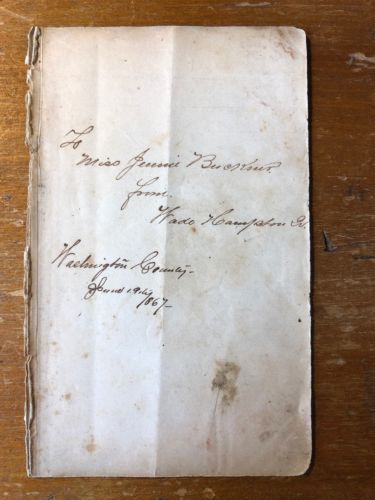 To
Miss Jennie Buckner
from
Wade Hampton
Washington County
June 19th
1867